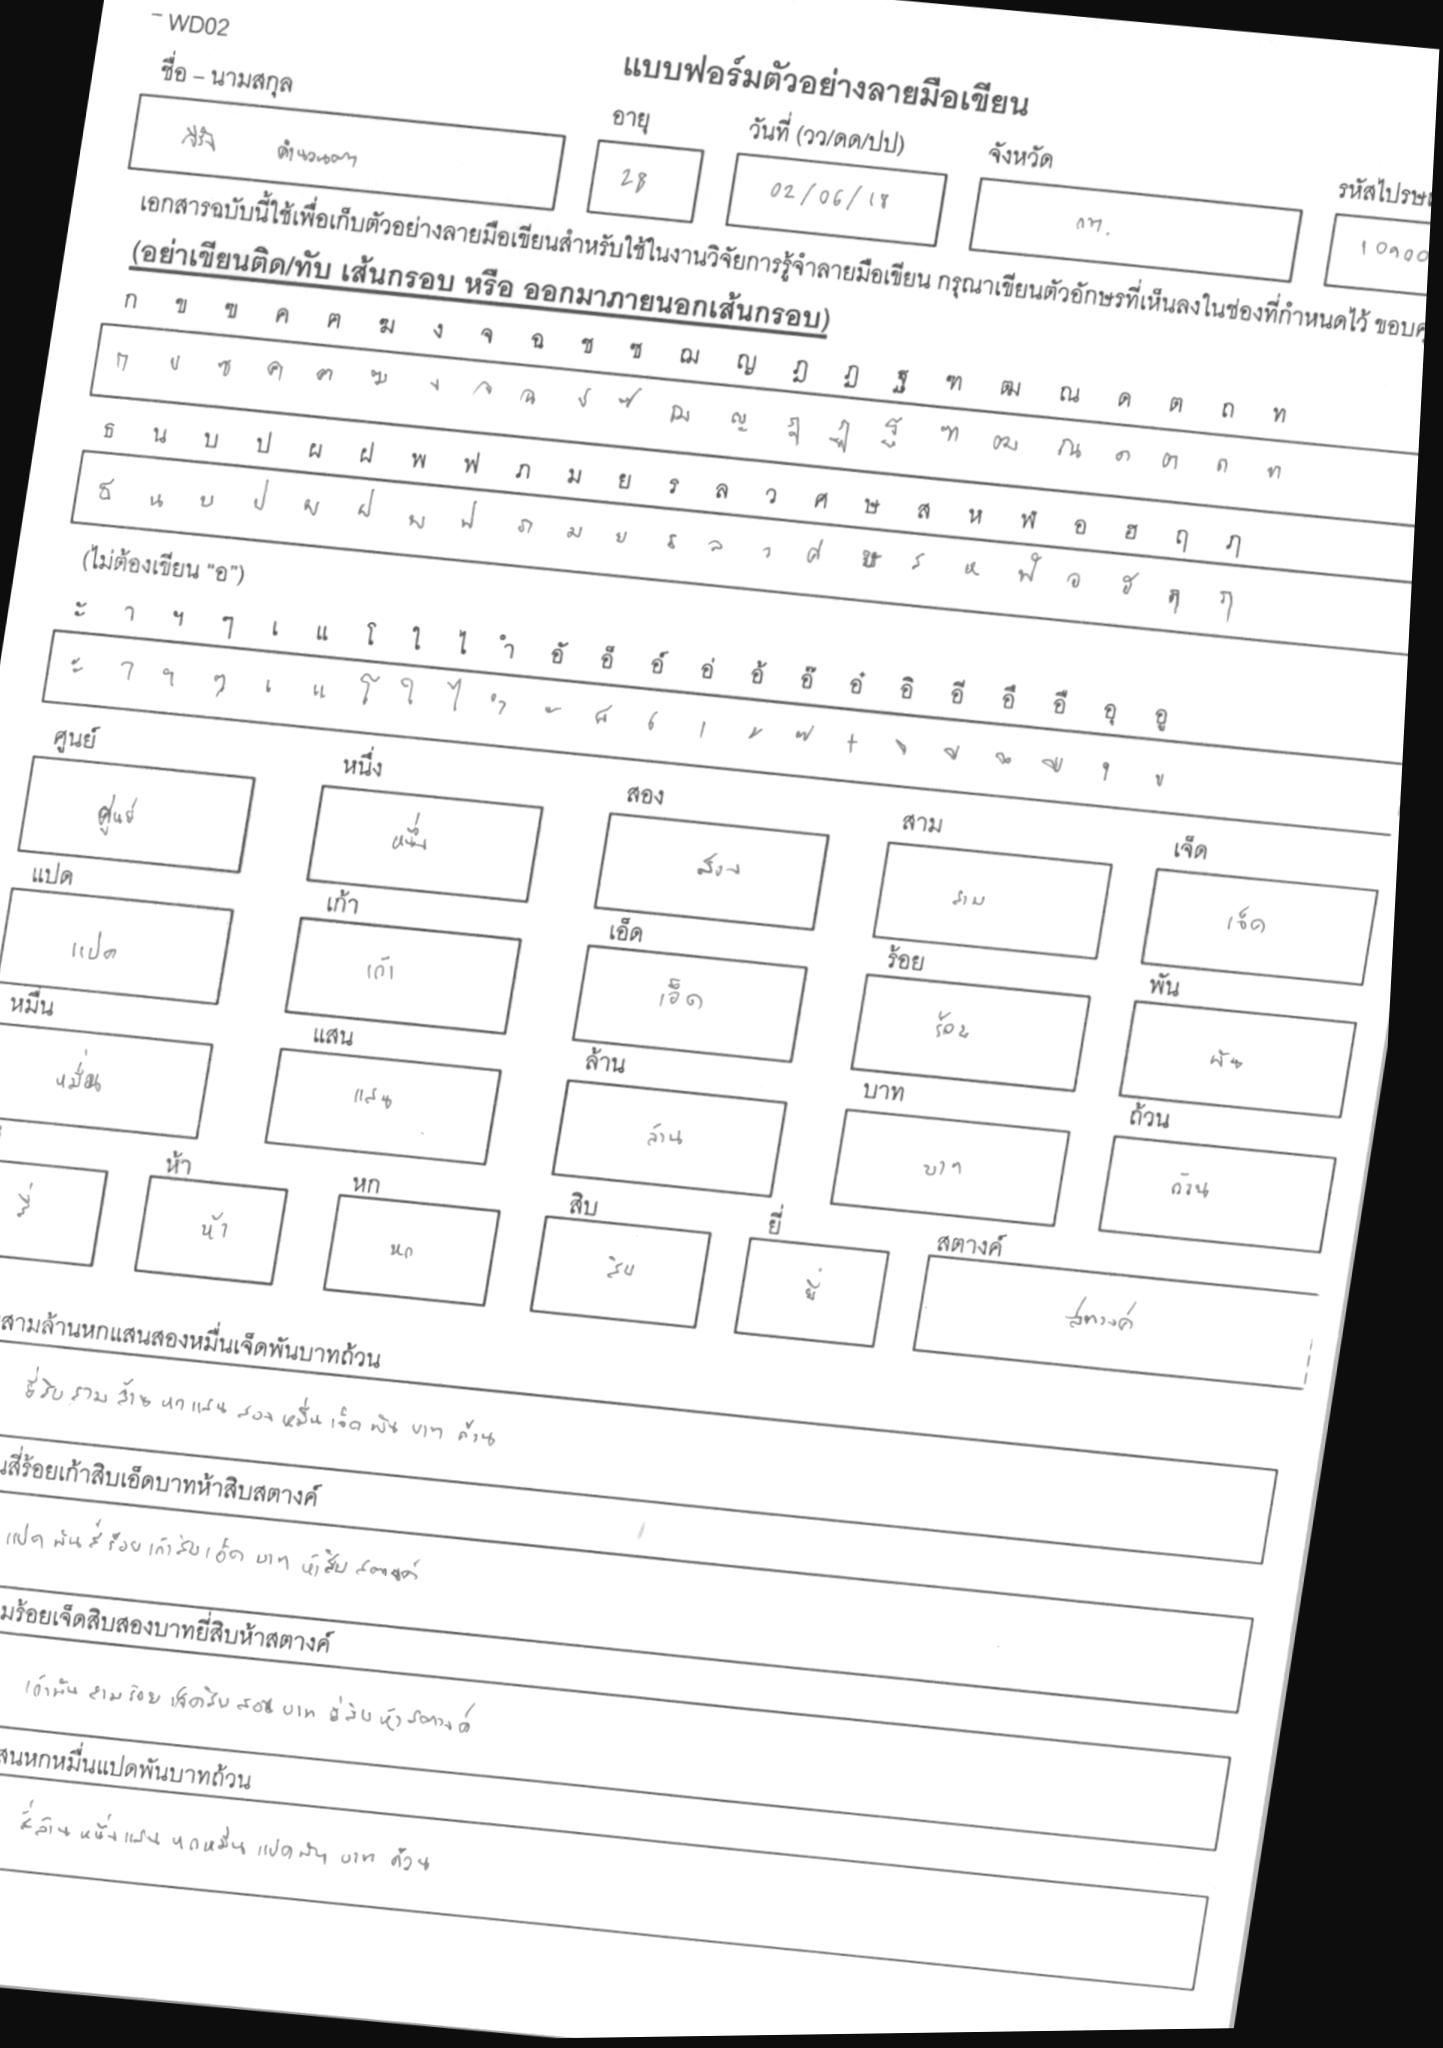 WD02
แบบฟอร์มตัวอย่างลายมือเขียน
ชื่อ – นามสกุล อายุ วันที่ (วว/ดด/ปป) จังหวัด
28 02/06/18 กท. 10900
เอกสารฉบับนี้ใช้เพื่อเก็บตัวอย่างลายมือเขียนสำหรับใช้ในงานวิจัยการรู้จำลายมือเขียน กรุณาเขียนตัวอักษรที่เห็นลงในช่องที่กำหนดไว้
(อย่าเขียนติด/ทับ เส้นกรอบ หรือ ออกมาภายนอกเส้นกรอบ)
ก ข ฃ ค ฅ ฆ ง จ ฉ ช ซ ฌ ญ ฎ ฏ ฐ ฑ ฒ ณ ด ต ถ ท
ก ข ฃ ค ฅ ฆ ง จ ฉ ช ซ ฌ ญ ฎ ฏ ฐ ฑ ฒ ณ ด ต ถ ท
ธ น บ ป ผ ฝ พ ฟ ภ ม ย ร ล ว ศ ษ ส ห ฬ อ ฮ ฤ ฦ
ธ น บ ป ผ ฝ พ ฟ ภ ม ย ร ล ว ศ ษ ส ห ฬ อ ฮ ฤ ฦ
(ไม่ต้องเขียน "อ")
ะ า ฯ ๆ เ แ โ ใ ไ ำ อั อ็ อ์ อ่ อ้ อ๊ อ๋ อิ อี อึ อื อุ อู
ะ า ฯ ๆ เ แ โ ใ ไ ำ ั ็ ์ ่ ้ ๊ ๋ ิ ี ึ ื ุ ู
ศูนย์ หนึ่ง สอง สาม เจ็ด
ศูนย์ หนึ่ง สอง สาม เจ็ด
แปด เก้า เอ็ด ร้อย พัน
แปด เก้า เอ็ด ร้อย พัน
หมื่น แสน ล้าน บาท ถ้วน
หมื่น แสน ล้าน บาท ถ้วน
ห้า หก สิบ ยี่ สตางค์
สี่ ห้า หก สิบ ยี่ สตางค์
สามล้านหกแสนสองหมื่นเจ็ดพันบาทถ้วน
ยี่สิบ สาม ล้าน หก แสน สอง หมื่น เจ็ด พัน บาท ถ้วน
สี่ร้อยเก้าสิบเอ็ดบาทห้าสิบสตางค์
แปด พัน สี่ ร้อย เก้า สิบ เอ็ด บาท ห้า สิบ สตางค์
ร้อยเจ็ดสิบสองบาทยี่สิบห้าสตางค์
เก้า พัน สาม ร้อย เจ็ด สิบ สอง บาท ยี่ สิบ ห้า สตางค์
หกหมื่นแปดพันบาทถ้วน
สี่ ล้าน หนึ่ง แสน หก หมื่น แปด พัน บาท ถ้วน